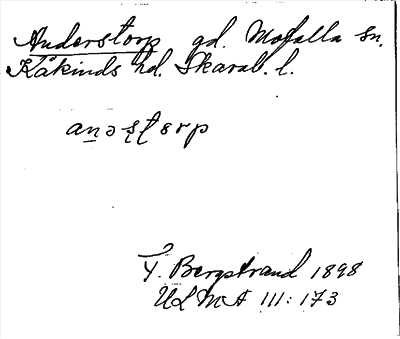 Anderstorp gd. Mofalla sn.
Kåkinds hd. Skarab. l.
anəstorp
T. Bergstrand 1898
ULMA 111:173